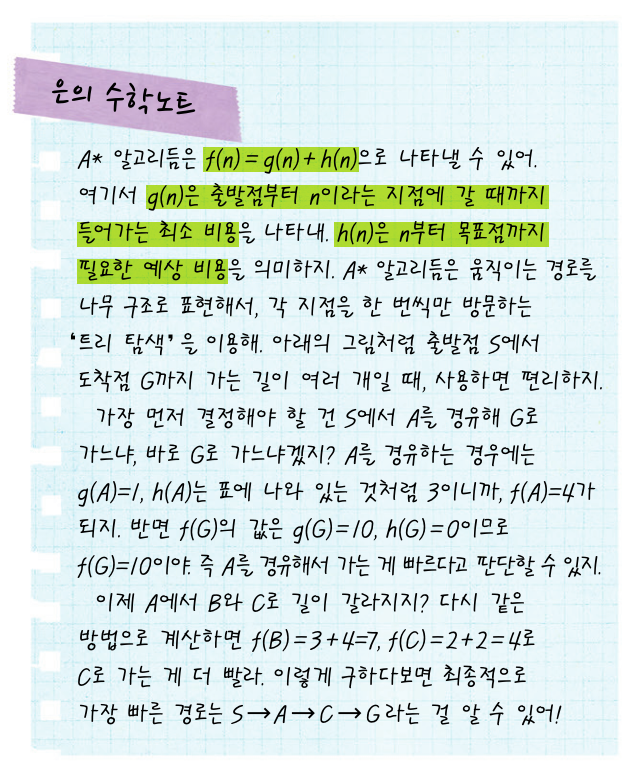 은의 수학노트
A* 알고리듬은 f(n)=g(n)+h(n)으로 나타낼 수 있어.
여기서 g(n)은 출발점부터 n이라는 지점에 갈 때까지
들어가는 최소 비용을 나타내. h(n)은 n부터 목표점까지
필요한 예상 비용을 의미하지. A* 알고리듬은 움직이는 경로를
나무 구조로 표현해서, 각 지점을 한 번씩만 방문하는
‘트리 탐색’을 이용해. 아래의 그림처럼 출발점 S에서
도착점 G까지 가는 길이 여러 개일 때, 사용하면 편리하지.
가장 먼저 결정해야 할 건 S에서 A를 경유해 G로
가느냐, 바로 G로 가느냐겠지? A를 경유하는 경우에는
g(A)=1, h(A)는 표에 나와 있는 것처럼 3이니까, f(A)=4가
되지. 반면 f(G)의 값은 g(G)=10, h(G)=0이므로
f(G)=10이야. 즉 A를 경유해서 가는 게 빠르다고 판단할 수 있지.
이제 A에서 B와 C로 길이 갈라지지? 다시 같은
방법으로 계산하면 f(B)=3+4=7, f(C)=2+2=4로
C로 가는 게 더 빨라. 이렇게 구하다보면 최종적으로
가장 빠른 경로는 S→A→C→G라는 걸 알 수 있어!